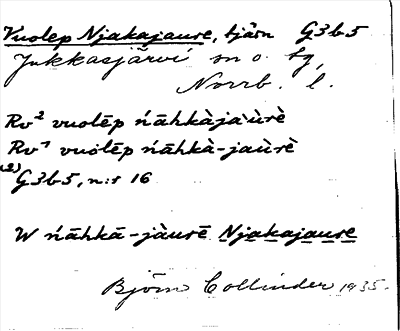 Vuolep Njakajaure, tjärn G3b5
Jukkasjärvi sn o. tg,
Norrb. l.
Rv² vuolēp ńāhkàjaùrè
Rv¹ vuolēp ńāhkà-jaùrè
(2) G3b5, n:r 16
W ńāhkā-jàurē Njakajaure
Björn Collinder 1935.